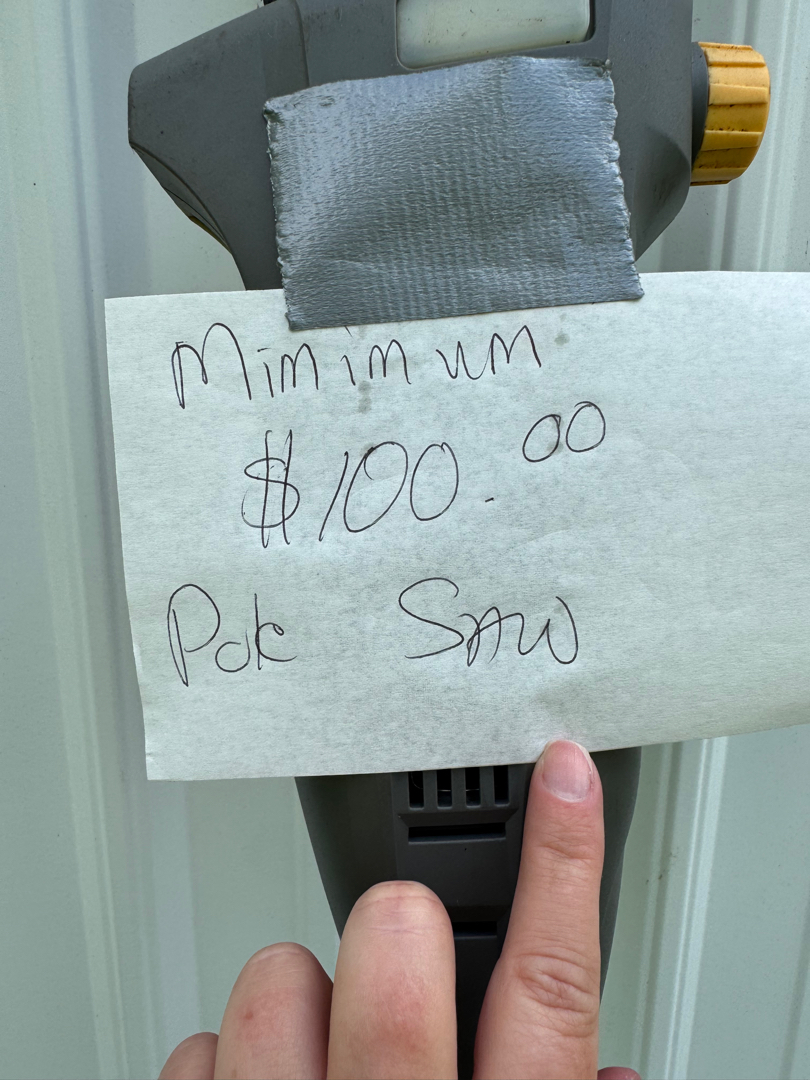 Minimum
$100.00
Pole Saw